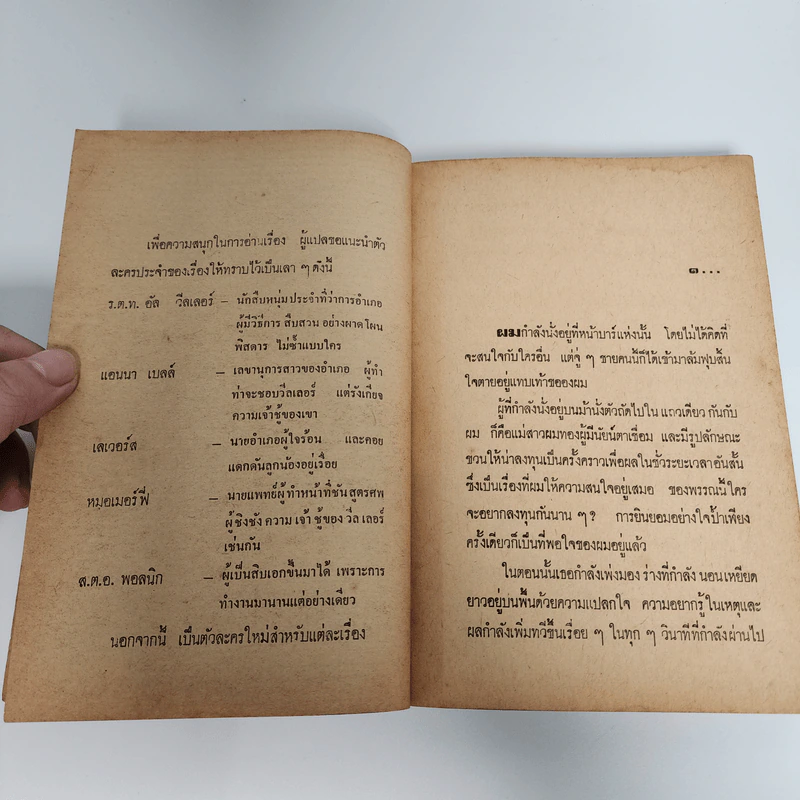 เพื่อความสนุกในการอ่านเรื่อง ผู้แปลขอแนะนำตัว
ละครประจำของเรื่องให้ทราบไว้เป็นเลา ๆ ดังนี้
ร.ต.ท. อัล วีลเลอร์ — นักสืบหนุ่มประจำที่ว่าการอำเภอ
ผู้มีวิธีการ สืบสวน อย่างผาดโผน
พิสดาร ไม่ซ้ำแบบใคร
แอนนา เบลล์ — เลขานุการสาวของอำเภอ ผู้ทำ
ท่าจะชอบวีลเลอร์ แต่รังเกียจ
ความเจ้าชู้ของเขา
เลเวอร์ส — นายอำเภอผู้ใจร้อน และคอย
แดกดันลูกน้องอยู่เรื่อย
หมอเมอร์ฟี่ — นายแพทย์ผู้ทำหน้าที่ชันสูตรศพ
ผู้ชิงชังความเจ้าชู้ของวีลเลอร์
เช่นกัน
ส.ต.อ. พอลนิก — ผู้เป็นสิบเอกขึ้นมาได้ เพราะการ
ทำงานมานานแต่อย่างเดียว
นอกจากนี้ เป็นตัวละครใหม่สำหรับแต่ละเรื่อง
๑...
ผมกำลังนั่งอยู่ที่หน้าบาร์แห่งนั้น โดยไม่ได้คิดที่
จะสนใจกับใครอื่น แต่จู่ ๆ ชายคนนี้ก็ได้เข้ามาล้มฟุบสิ้น
ใจตายอยู่แทบเท้าของผม
ผู้ที่กำลังนั่งอยู่บนม้านั่งตัวถัดไปใน แถวเดียว กันกับ
ผม ก็คือแม่สาวผมทองผู้มีนัยน์ตาเชื่อม และมีรูปลักษณะ
ชวนให้น่าลงทุนเป็นครั้งคราวเพื่อผลในชั่วระยะเวลาอันสั้น
ซึ่งเป็นเรื่องที่ผมให้ความสนใจอยู่เสมอ ของพรรณนี้ใคร
จะอยากลงทุนกันนาน ๆ? การยินยอมอย่างใจป้ำเพียง
ครั้งเดียวก็เป็นที่พอใจของผมอยู่แล้ว
ในตอนนั้นเธอกำลังเพ่งมอง ร่างที่กำลัง นอนเหยียด
ยาวอยู่บนพื้นด้วยความแปลกใจ ความอยากรู้ในเหตุและ
ผลกำลังเพิ่มทวีขึ้นเรื่อย ๆ ในทุก ๆ วินาทีที่กำลังผ่านไป